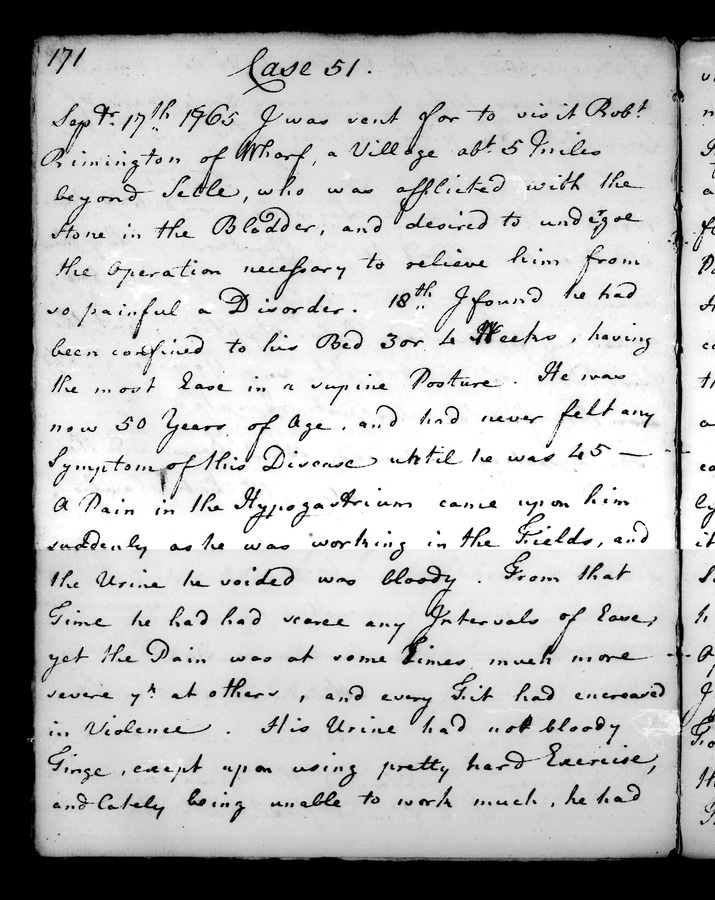 171
Case 51.
Septr. 17th 1765 I was sent for to visit Robt
Rimington of Wharf, a Village abt 5 Miles
beyond Setle, who was afflicted with the
Stone in the Bladder, and desired to undergoe
the Operation necessary to relieve him from
so painful a Disorder. 18th I found he had
been confined to his Bed 3 or 4 Weeks, having
the most Ease in a supine Posture. He was
now 50 Years of Age, and had never felt any
Symptom of this Disease until he was 45 —
A Pain in the Hypogastrium came upon him
suddenly as he was working in the Fields, and
the Urine he voided was bloody. From that
Time he had had scarce any Intervals of Ease,
yet the Pain was at some Times much more
severe yn at others, and every Fit had encreased
in Violence. His Urine had not bloody
Tinge, except upon using pretty hard Exercise,
and lately being unable to work much, he had